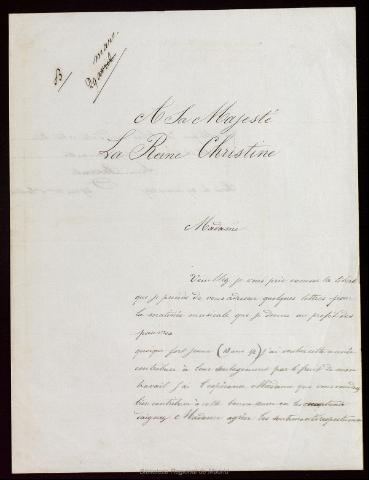 B
mars
29 avril
A Sa Majesté
La Reine Christine
Madame
Veuillez je vous prie excuser la liberté
que je prends de vous adresser quelques lettres pour
la matinée musicale que je donne au profit des
pauvres
quoique fort jeune (10 ans ½) j'ai voulu cette année
contribuer à leur soulagement par le fruit de mon
travail j'ai l'espérance Madame que vous voudrez
bien contribuer à cette bonne œuvre en les acceptant
daignez Madame agréer les sentiments respectueux
Biblioteca Regional de Madrid